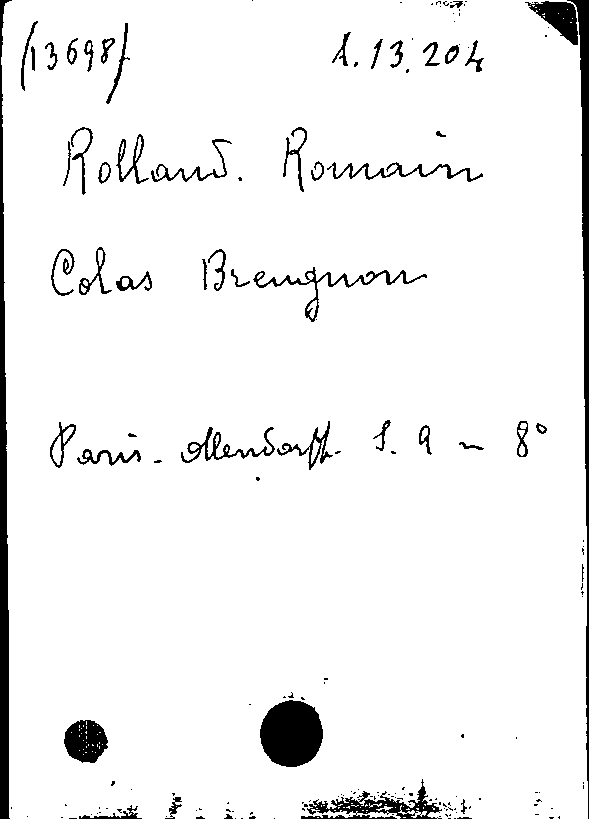 (13698)
1.13.204
Rolland. Romain
Colas Breugnon
Paris. Ollendorff. S. a ~ 8°